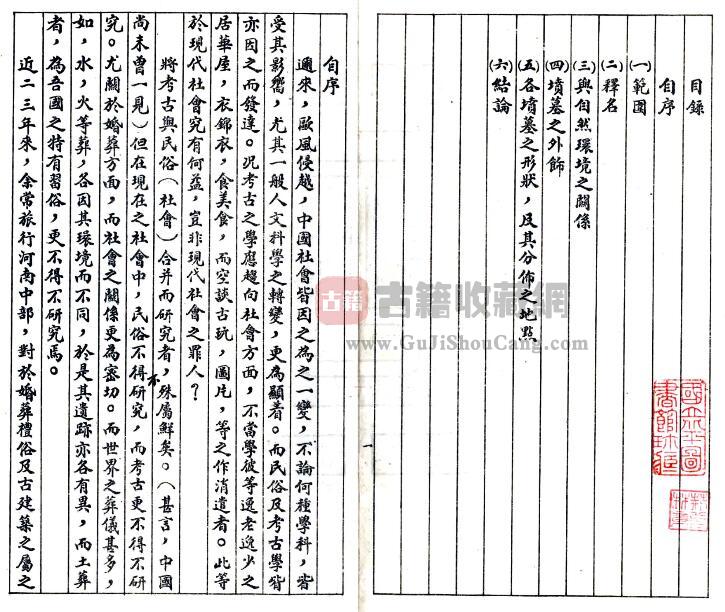 目錄
自序
(一)範圍
(二)釋名
(三)與自然環境之關係
(四)墳墓之外飾
(五)各墳墓之形狀,及其分佈之地點
(六)結論
國立北平圖
書館珍藏
古籍
古籍收藏網
www.GuJiShouCang.com
一
自序
邇來,歐風侵越,中國社會皆因之為之一變,不論何種學科,皆
受其影響,尤其一般人文科學之轉變,更為顯着。而民俗及考古學皆
亦因之而發達。況考古之學應趨向社會方面,不當學彼等逸老逸少之
居華屋,衣錦衣,食美食,而空談古玩,圖片,等之作消遣者。此等
於現代社會究有何益,豈非現代社會之罪人?
將考古與民俗(社會)合并而研究者,殊屬鮮矣。(甚言,中國
尚未曾一見)但在現在之社會中,民俗不得不研究,而考古更不得不研
究。尤關於婚葬方面,而社會之關係更為密切。而世界之葬儀甚多,
如,水,火等葬,各因其環境而不同,於是其遺跡亦各有異,而土葬
者,為吾國之特有習俗,更不得不研究焉。
近二三年來,余常旅行河南中部,對於婚葬禮俗及古建築之屬之